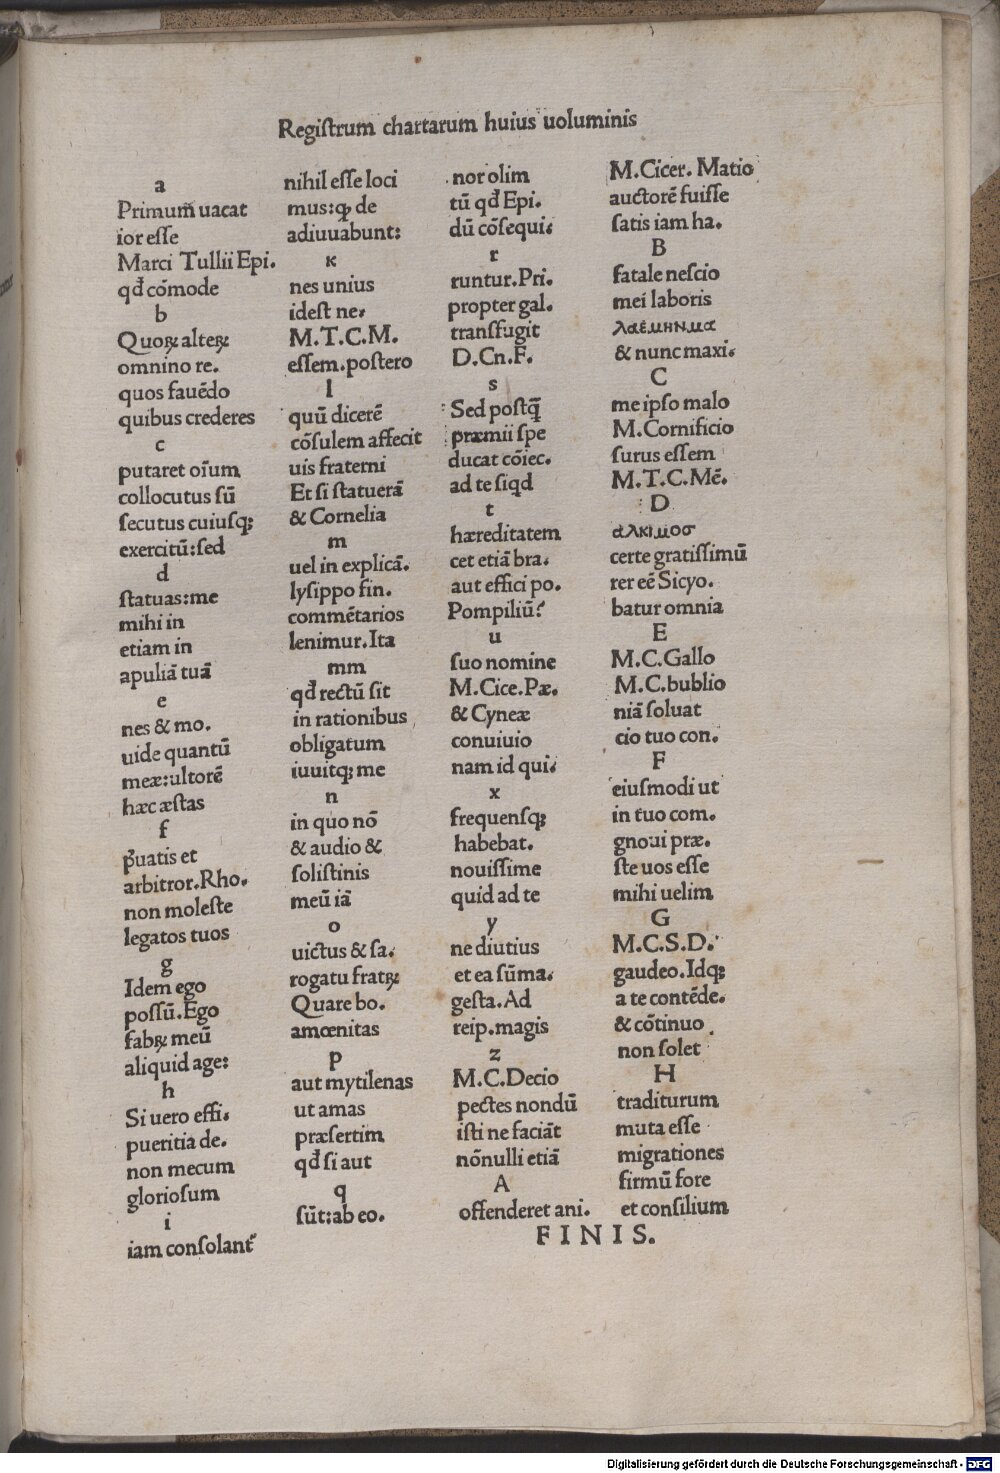 Regiſtrum chartarum huius uoluminis
a
Primum̃ uacat
ior eſſe
Marci Tullii Epi.
qđ cómode
b
Quoꝝ alteꝝ
omnino re.
quos fauēdo
quibus crederes
c
putaret oīum
collocutus ſū
ſecutus cuiuſqꝫ
exercitū:ſed
d
ſtatuas:me
mihi in
etiam in
apuliā tuā
e
nes & mo.
uide quantū
meæ:ultorē
hæc æſtas
f
p̄uatis et
arbitror.Rho.
non moleſte
legatos tuos
g
Idem ego
poſſū.Ego
fabꝝ meū
aliquid age:
h
Si uero effi.
pueritia de.
non mecum
glorioſum
i
iam conſolant᷑
nihil eſſe loci
mus:ꝙ de
adiuuabunt:
κ
nes unius
ideſt ne.
M.T.C.M.
eſſem.poſtero
l
quū dicerē
cōſulem affecit
uis fraterni
Et ſi ſtatuerā
& Cornelia
m
uel in explicā.
lyſippo fin.
commētarios
lenimur.Ita
mm
qđ rectū ſit
in rationibus
obligatum
iuuitqꝫ me
n
in quo nō
& audio &
ſoliſtinis
meū iā
o
uictus & ſa.
rogatu fratꝝ
Quare bo.
amœnitas
p
aut mytilenas
ut amas
præſertim
qđ ſi aut
q
ſūt:ab eo.
nor olim
tū qđ Epi.
dū cōſequi.
r
runtur.Pri.
propter gal.
tranſfugit
D.Cn.F.
s
Sed poſtꝗ̄
præmii ſpe
ducat cōiec.
ad te ſiqd
t
hæreditatem
cet etiā bra.
aut effici po.
Pompiliū?
u
ſuo nomine
M.Cice.Pæ.
& Cyneæ
conuiuio
nam id qui.
x
frequenſqꝫ
habebat.
nouiſſime
quid ad te
y
ne diutius
et ea ſūma.
geſta.Ad
reip.magis
z
M.C.Decio
pectes nondū
iſti ne faciāt
nōnulli etiā
A
offenderet ani.
M.Cicer. Matio
auctorē fuiſſe
ſatis iam ha.
B
fatale neſcio
mei laboris
λαέμηνμα
& nunc maxi.
C
me ipſo malo
M.Cornificio
ſurus eſſem
M.T.C.Mē.
D
αλκιμοσ
certe gratiſſimū
rer eē Sicyo.
batur omnia
E
M.C.Gallo
M.C.bublio
niā ſoluat
cio tuo con.
F
eiuſmodi ut
in tuo com.
gnoui præ.
ſte uos eſſe
mihi uelim
G
M.C.S.D.
gaudeo.Idqꝫ
a te contēde.
& cōtinuo
non ſolet
H
traditurum
muta eſſe
migrationes
firmū fore
et conſilium
FINIS.
Digitalisierung gefördert durch die Deutsche Forschungsgemeinschaft - DFG